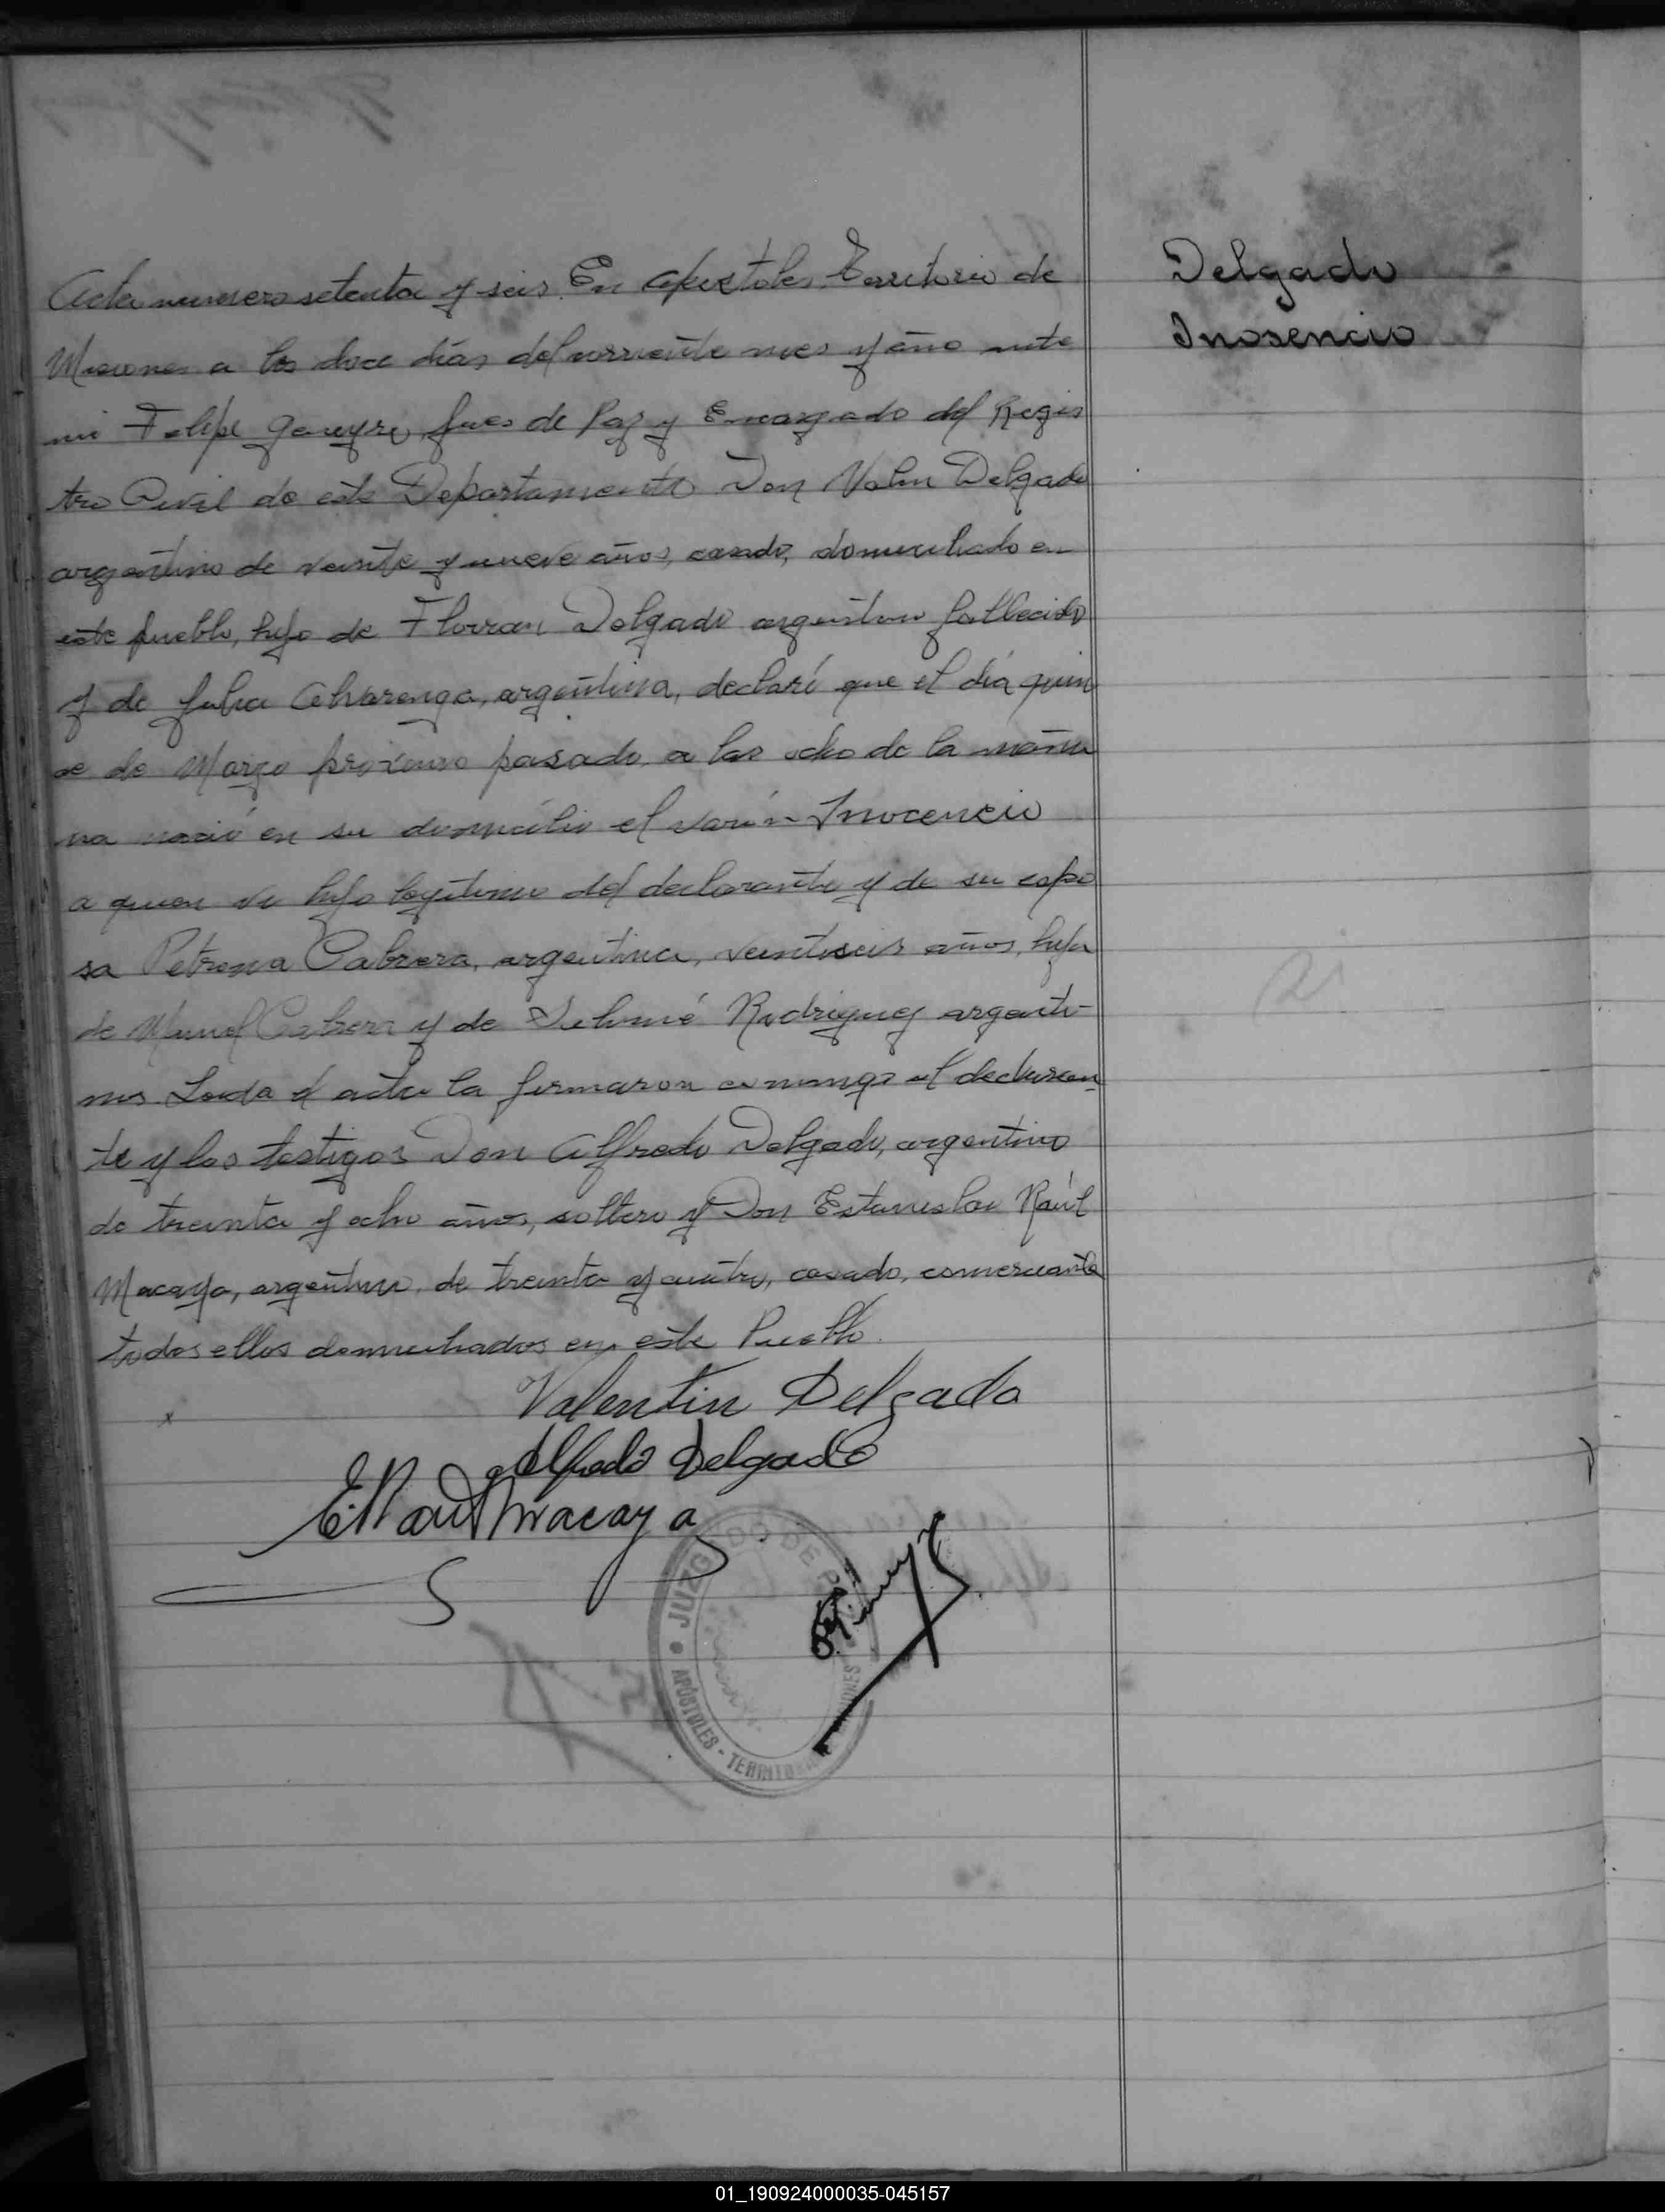 Acta numero setenta y seis. En Apostoles Territorio de
Misiones a los doce dias del corriente mes y año ante
mi Felipe Juez de Paz y Encargado del Regis
tro Civil de este Departamento Don Delgado
argentino de veinte y nueve años, casado, domiciliado en
este pueblo, hijo de Delgado argentino fallecido
y de Julia Alvarenga, argentina, declaró que el día quin
ce de Marzo próximo pasado a las ocho de la maña
na nació en su domicilio el varón Inocencio
a quien hijo legitimo del declarante y de su espo
sa Petrona Cabrera, argentina, veintiseis años, hija
de Manuel Cabrera y de Rodriguez argenti-
nos Leida el acta la firmaron conmigo el declaran
te y los testigos Don Alfredo Delgado, argentino
de treinta y ocho años, soltero y Don Estanislao Raúl
Macaya, argentino, de treinta y cuatro, casado, comerciante
todos ellos domiciliados en este Pueblo.
Valentin Delgado
Alfredo Delgado
E. Raul Macaya
JUZGADO DE P
APÓSTOLES - TERRITORIO MISIONES
Delgado
Inosencio
01_190924000035-045157